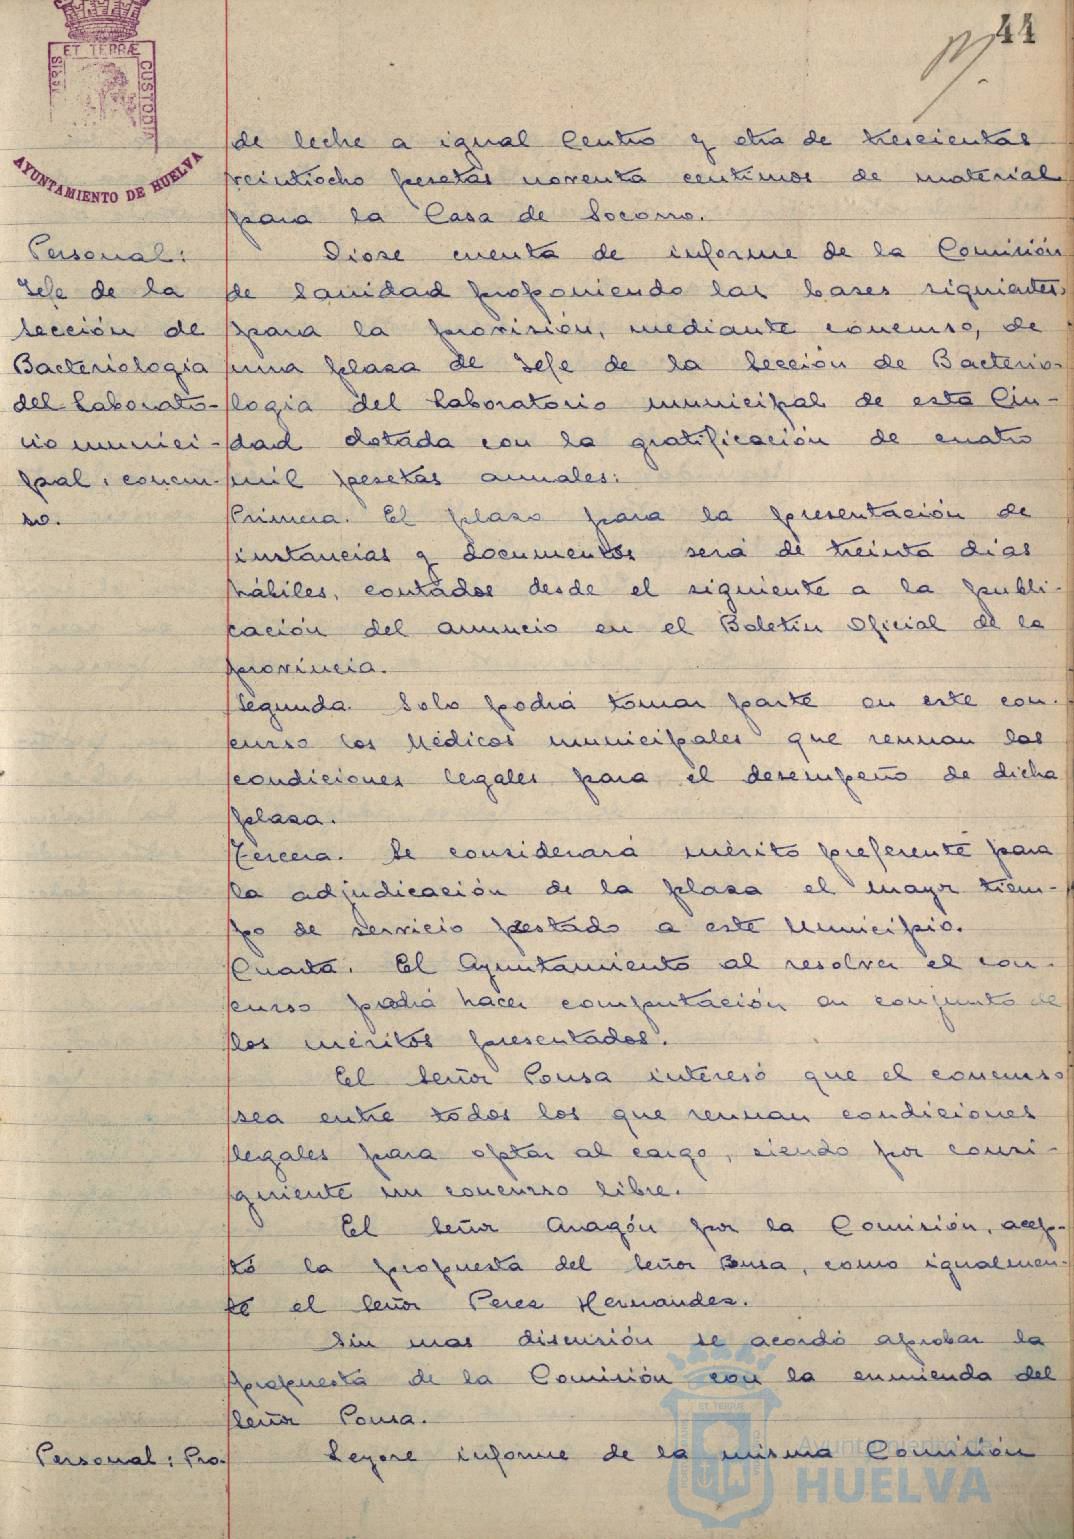 44
ET TERRÆ
CUSTODIA
AYUNTAMIENTO DE HUELVA
de leche a igual Centro y otra de trescientas
veintiocho pesetas noventa centimos de material
para la Casa de Socorro.
Personal:
Jefe de la
Sección de
Bacteriologia
del Laborato-
rio munici-
pal, concur-
so.
Diose cuenta de informe de la Comisión
de Sanidad proponiendo las bases siguientes
para la provisión, mediante concurso, de
una plaza de Jefe de la Sección de Bacterio-
logia del Laboratorio municipal de esta Ciu-
dad dotada con la gratificación de cuatro
mil pesetas anuales:
Primera. El plazo para la presentación de
instancias y documentos será de treinta dias
hábiles, contados desde el siguiente a la publi-
cación del anuncio en el Boletin Oficial de la
provincia.
Segunda. Solo podrá tomar parte en este con-
curso los Médicos municipales que reunan las
condiciones legales para el desempeño de dicha
plaza.
Tercera. Se considerará mérito preferente para
la adjudicación de la plaza el mayor tiem-
po de servicio prestado a este Municipio.
Cuarta. El Ayuntamiento al resolver el con-
curso podrá hacer computación en conjunto de
los méritos presentados.
El Señor Pousa interesó que el concurso
sea entre todos los que reunan condiciones
legales para optar al cargo, siendo por consi-
guiente un concurso libre.
El Señor Aragón por la Comisión, acep-
tó la propuesta del Señor Pousa, como igualmen-
te el Señor Perez Hernandez.
Sin mas discusión se acordó aprobar la
propuesta de la Comisión con la enmienda del
Señor Pousa.
Personal: Pro-
Leyose informe de la misma Comisión
Ayuntamiento de
HUELVA